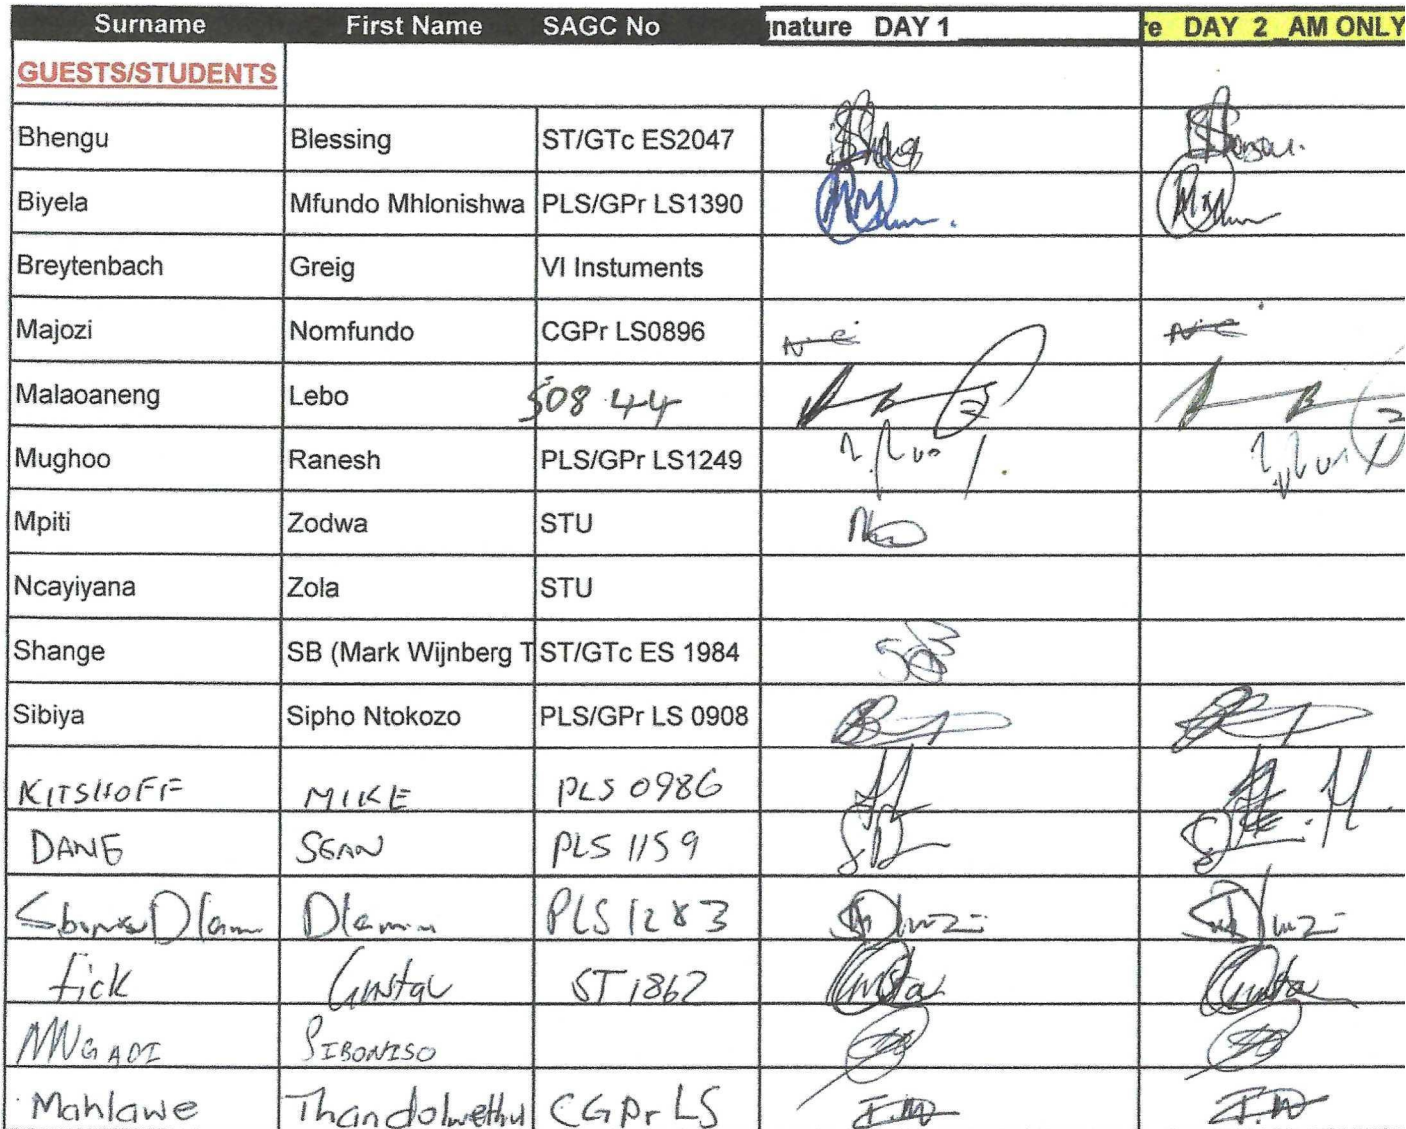 Surname First Name SAGC No gnature DAY 1 e DAY 2 AM ONLY
GUESTS/STUDENTS
Bhengu Blessing ST/GTc ES2047
Biyela Mfundo Mhlonishwa PLS/GPr LS1390
Breytenbach Greig VI Instuments
Majozi Nomfundo CGPr LS0896
Malaoaneng Lebo S0844
Mughoo Ranesh PLS/GPr LS1249
Mpiti Zodwa STU
Ncayiyana Zola STU
Shange SB (Mark Wijnberg T ST/GTc ES 1984
Sibiya Sipho Ntokozo PLS/GPr LS 0908
KITSHOFF MIKE PLS 0986
DANE SEAN PLS 1159
Dlamini PLS 1283
Fick Gustav ST 1862
MNGADI SIBONISO
Mahlawe Thandolwethu CGPr LS